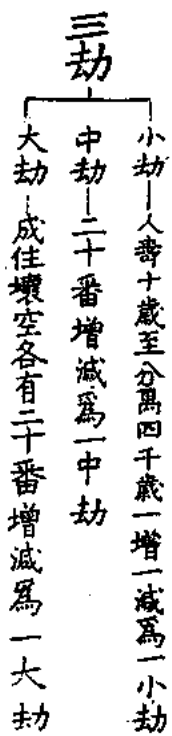 三劫
小劫—人壽十歲至八萬四千歲一增一減爲一小劫
中劫—二十番增減爲一中劫
大劫—成住壞空各有二十番增減爲一大劫